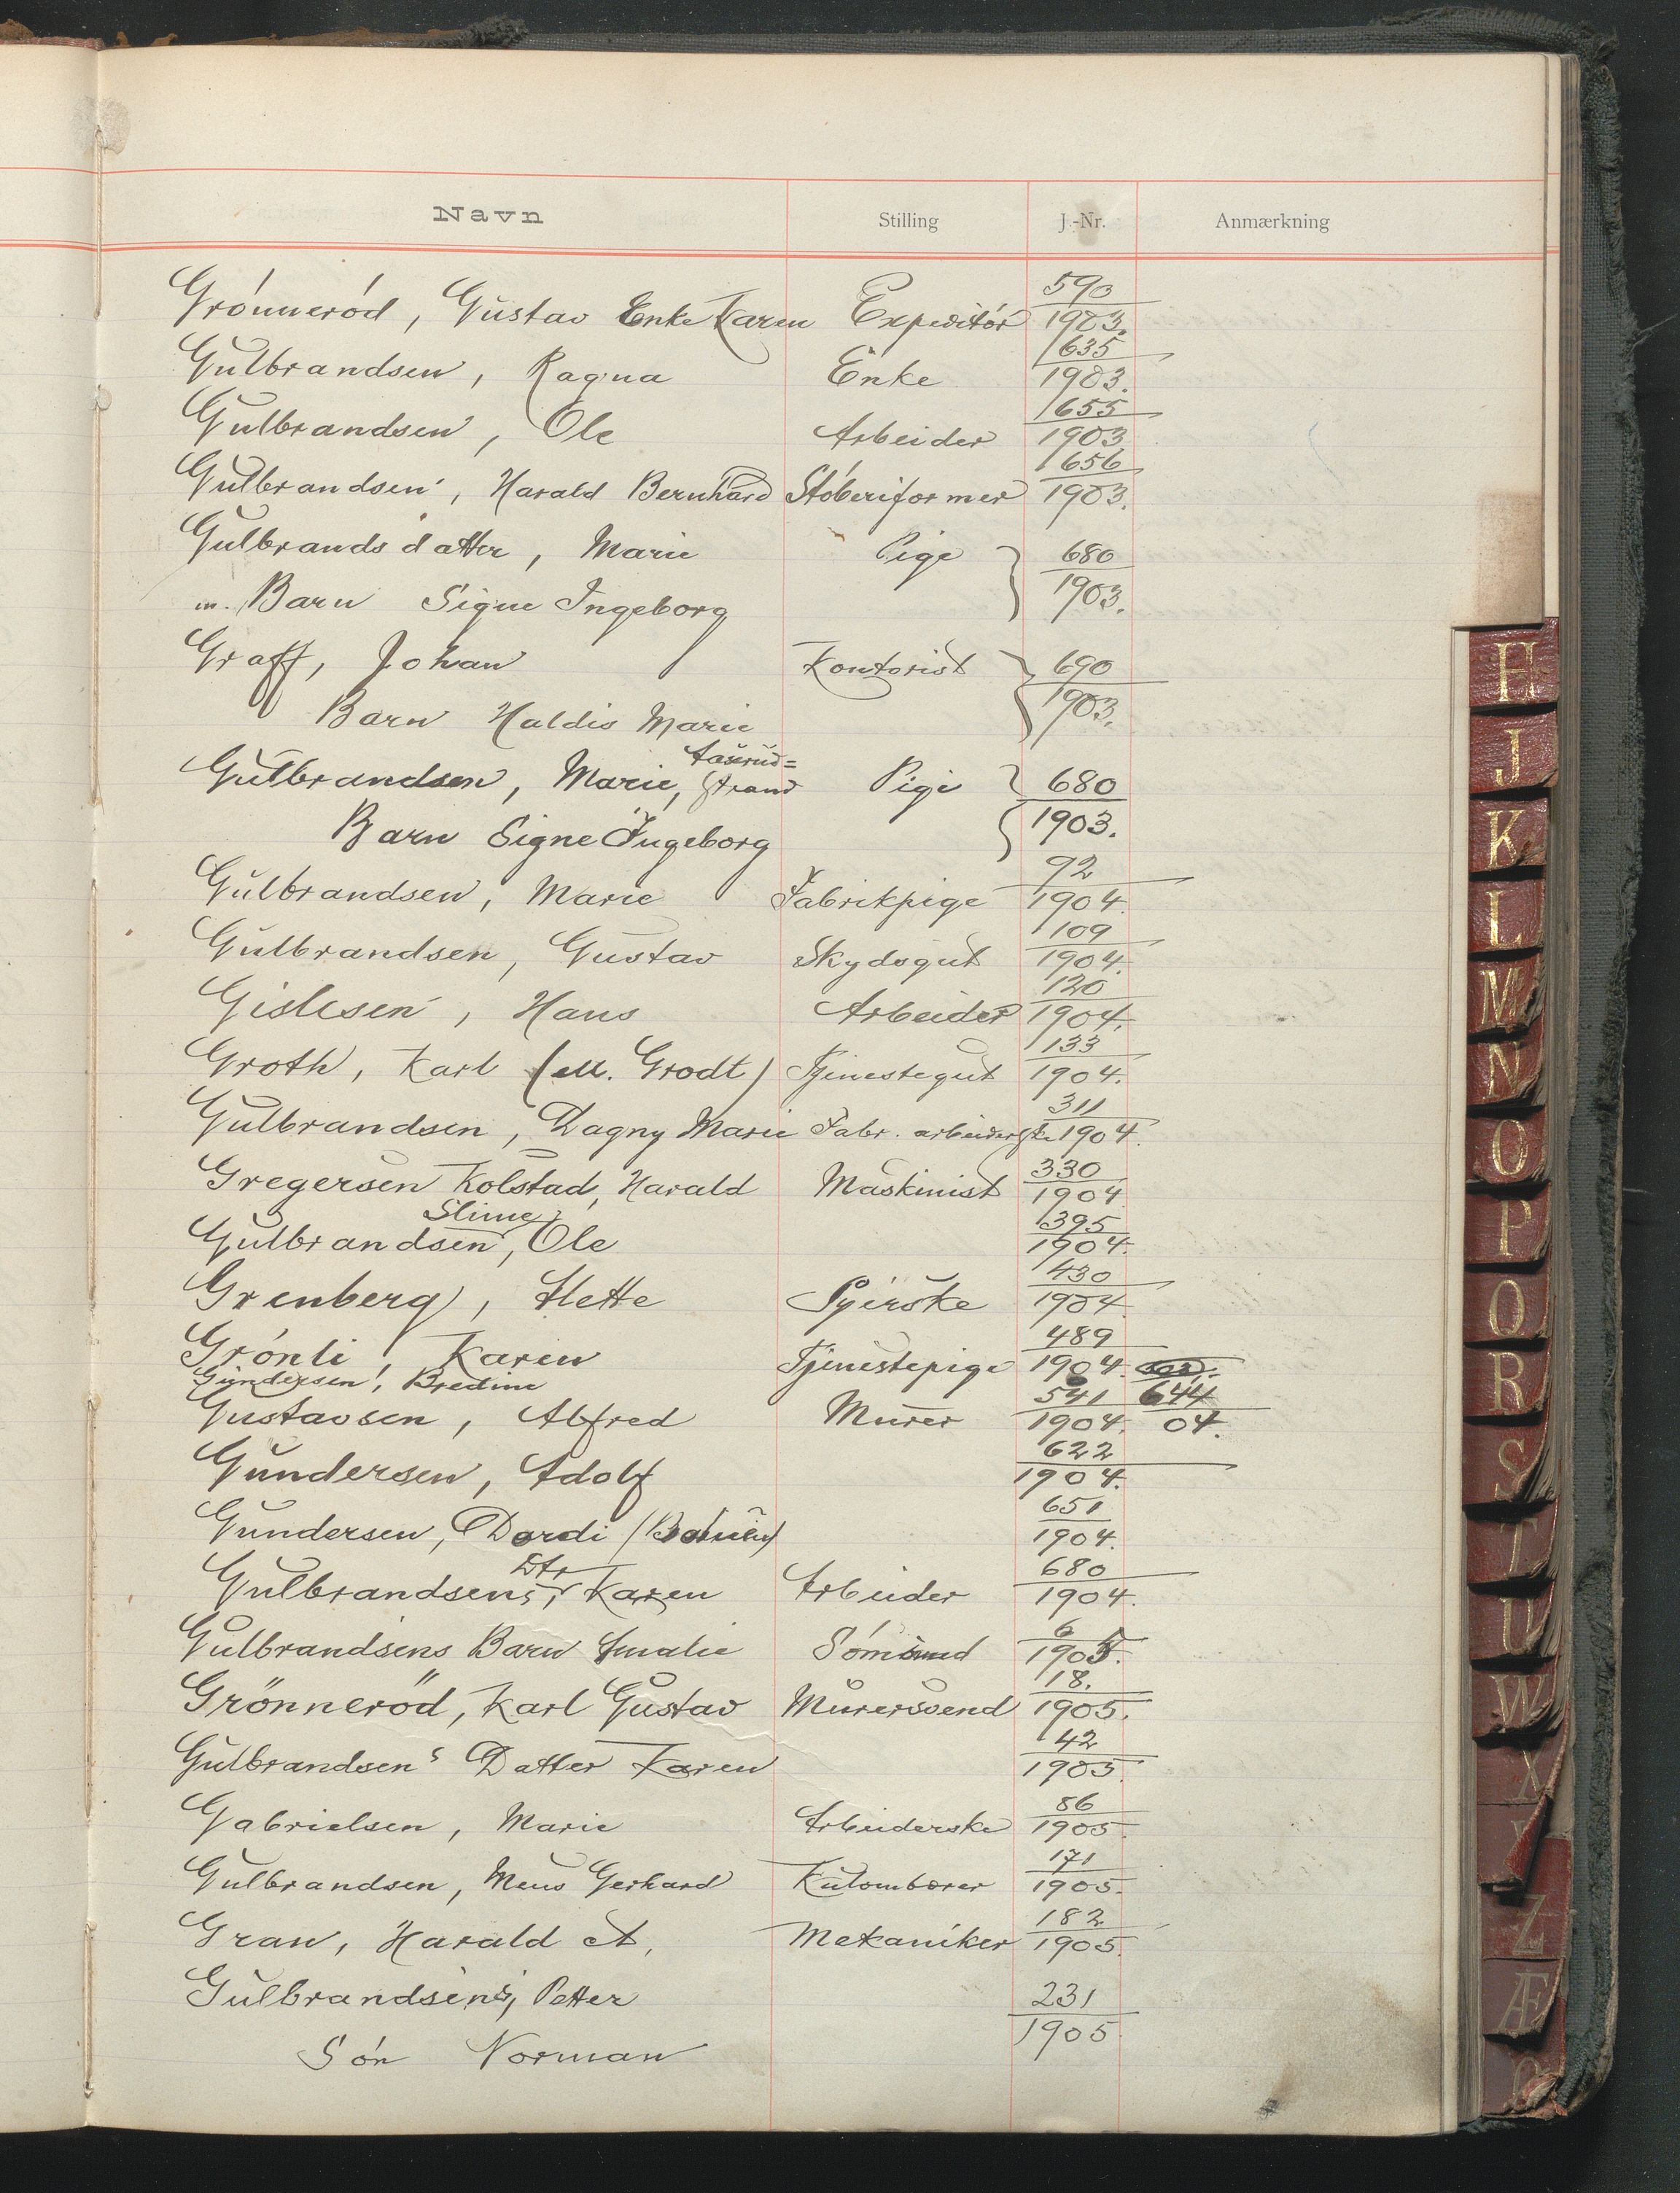 Navn Stilling J.-Nr. Anmærkning
Grónneród, Gustav Enke Karen Expeditór 590/1903.
Gulbrandsen, Ragna Enke 635/1903.
Gulbrandsen, Ole Arbeider 655/1903
Gulbrandsen, Harald Bernhard Stóberiformer 656/1903.
Gulbrandsdatter, Marie Pige 680/1903.
m. Barn Signe Ingeborg
Graff, Johan Kontorist 690/1903.
Barn Haldis Marie
Gulbrandsen, Marie, Aaserud=strand Pige 680/1903.
Barn Signe Ingeborg
Gulbrandsen, Marie Fabrikpige 92/1904.
Gulbrandsen, Gustav Skydsgut 109/1904.
Gislesen, Hans Arbeider 120/1904.
Groth, Karl (ell. Grodt) Tjenestegut 133/1904.
Gulbrandsen, Dagny Marie Fabr. arbeiderske 311/1904.
Gregersen Kolstad, Harald Maskinist 330/1904
Gulbrandsen Slime, Ole 395/1904.
Grenberg, Hette Syerske 430/1904
Grónli, Karen Tjenestepige 489/1904.
Gundersen, Bredine 644/04.
Gustavsen, Alfred Murer 541/1904.
Gundersen, Adolf 622/1904.
Gundersen, Dordi 651/1904.
Gulbrandsens Dtr, Karen Arbeider 680/1904.
Gulbrandsens Barn Amalie Sómand 6/1905.
Grönneröd, Karl Gustav Murersvend 18./1905.
Gulbrandsens Datter Karen 42/1905.
Gabrielsen, Marie Arbeiderske 86/1905.
Gulbrandsen, Mens Gerhard Kulombærer 171/1905.
Gran, Harald A. Mekaniker 182/1905.
Gulbrandsens, Petter 231/1905.
Són Norman
H
J
K
L
M
N
O
P
Q
R
S
T
U
W
X
Z
Æ